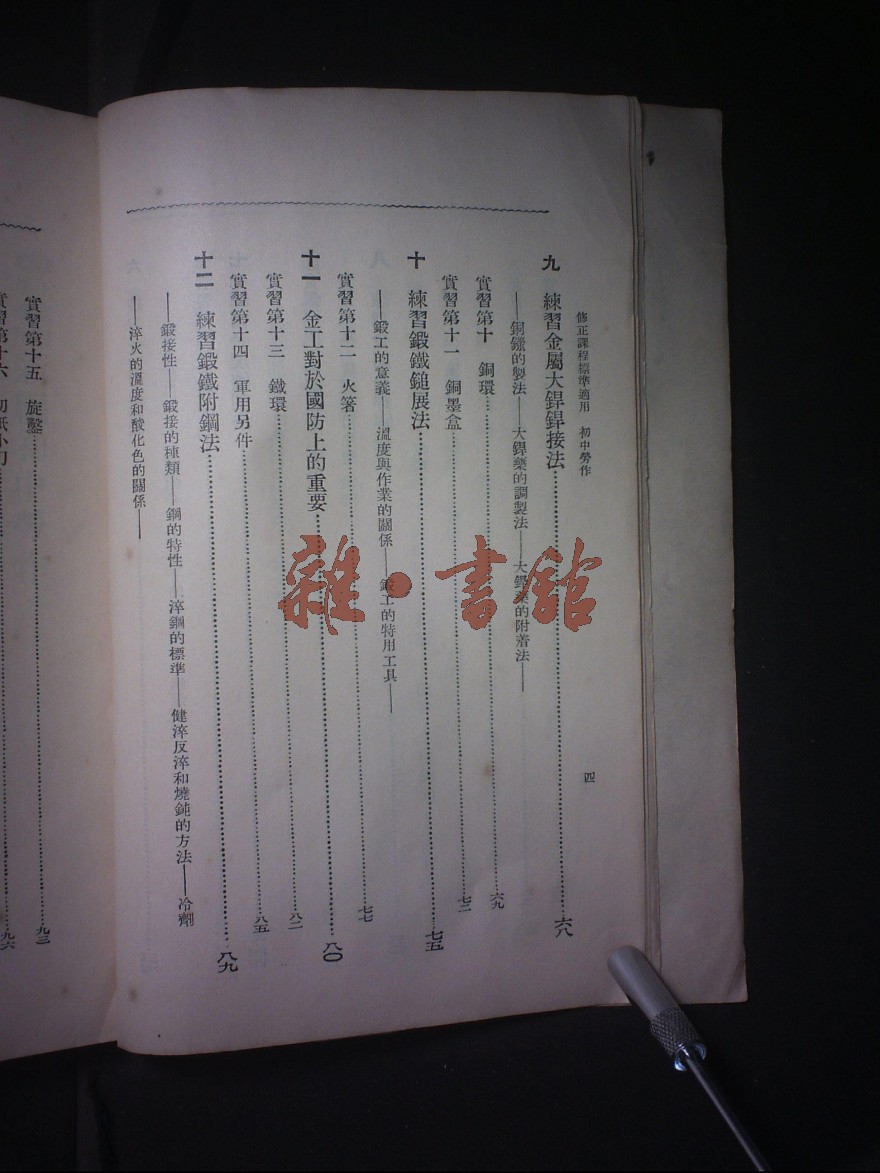 修正課程標準適用　初中勞作
四
九　練習金屬大銲銲接法……六八
——銅鑞的製法——大銲藥的調製法——大銲藥的附着法——
實習第十　銅環……六九
實習第十一　銅墨盒……七二
十　練習鍛鐵鎚展法……七五
——鍛工的意義——溫度與作業的關係——鍛工的特用工具——
實習第十二　火箸……七七
十一　金工對於國防上的重要……八〇
實習第十三　鐵環……八二
實習第十四　軍用另件……八五
十二　練習鍛鐵附鋼法……八九
——鍛接性——鍛接的種類——鋼的特性——淬鋼的標準——健淬反淬和燒鈍的方法——冷劑
——淬火的溫度和酸化色的關係——
實習第十五　旋鑿……九三
實習第十六　切紙小刀……九六
雜·書館